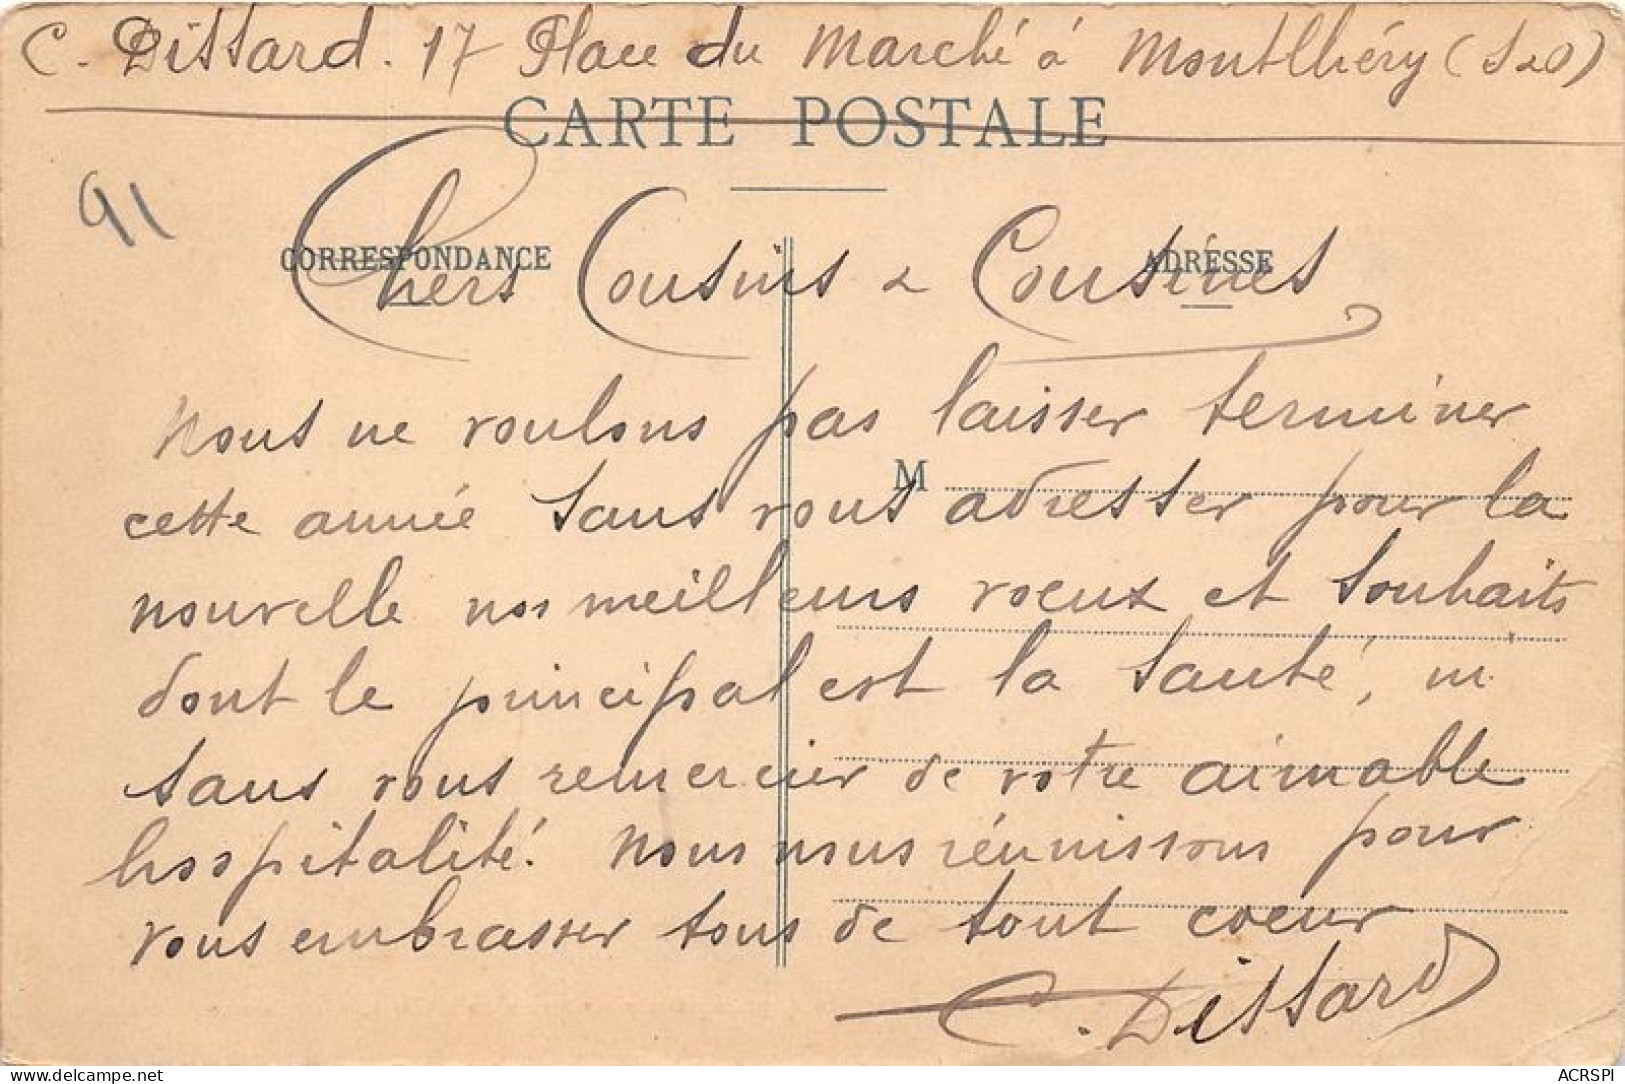 C. Dissard. 17 Place du Marché à Montlhéry (S & O)
CARTE POSTALE
91
CORRESPONDANCE
ADRESSE
Chers Cousins & Cousines
Nous ne voulons pas laisser terminer
M
cette année sans vous adresser pour la
nouvelle nos meilleurs voeux et souhaits
dont le principal est la santé, ni
sans vous remercier de votre aimable
hospitalité. Nous nous réunissons pour
vous embrasser tous de tout coeur
C. Dissard
ACRSPI